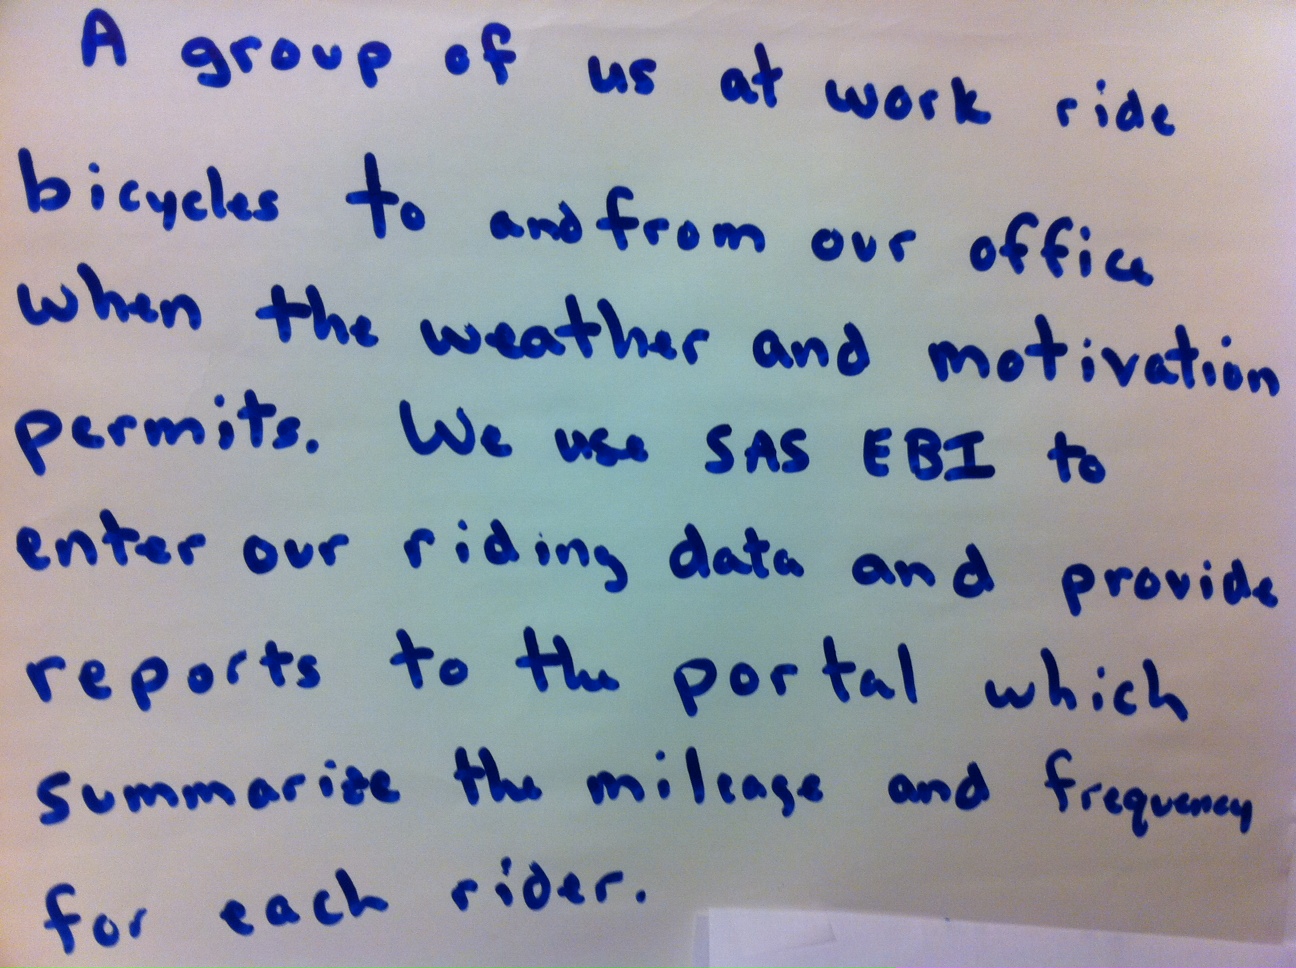 A group of us at work ride
bicycles to and from our office
when the weather and motivation
permits. We use SAS EBI to
enter our riding data and provide
reports to the portal which
summarize the mileage and frequency
for each rider.